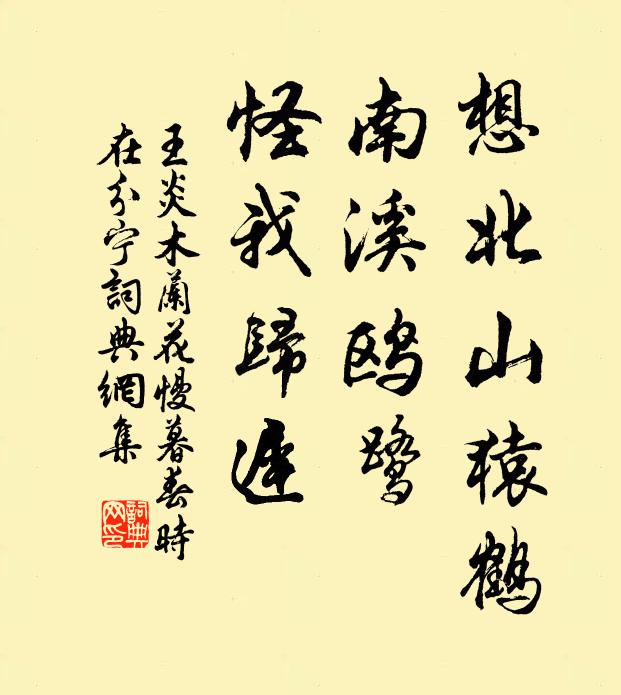 想北山猿鶴
南溪鸥鹭
怪我歸遲
王炎木蘭花慢暮春時
在分宁詞典網集
詞典
网印